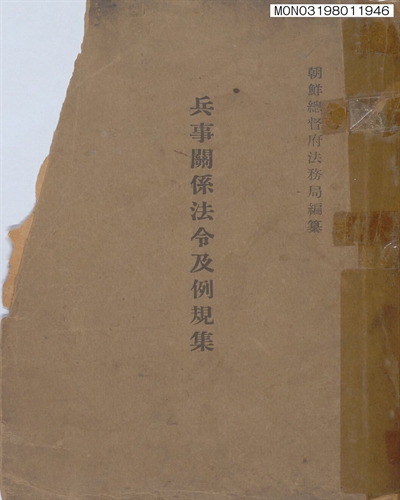 MONO3198011946
朝鮮總督府法務局編纂
兵事關係法令及例規集